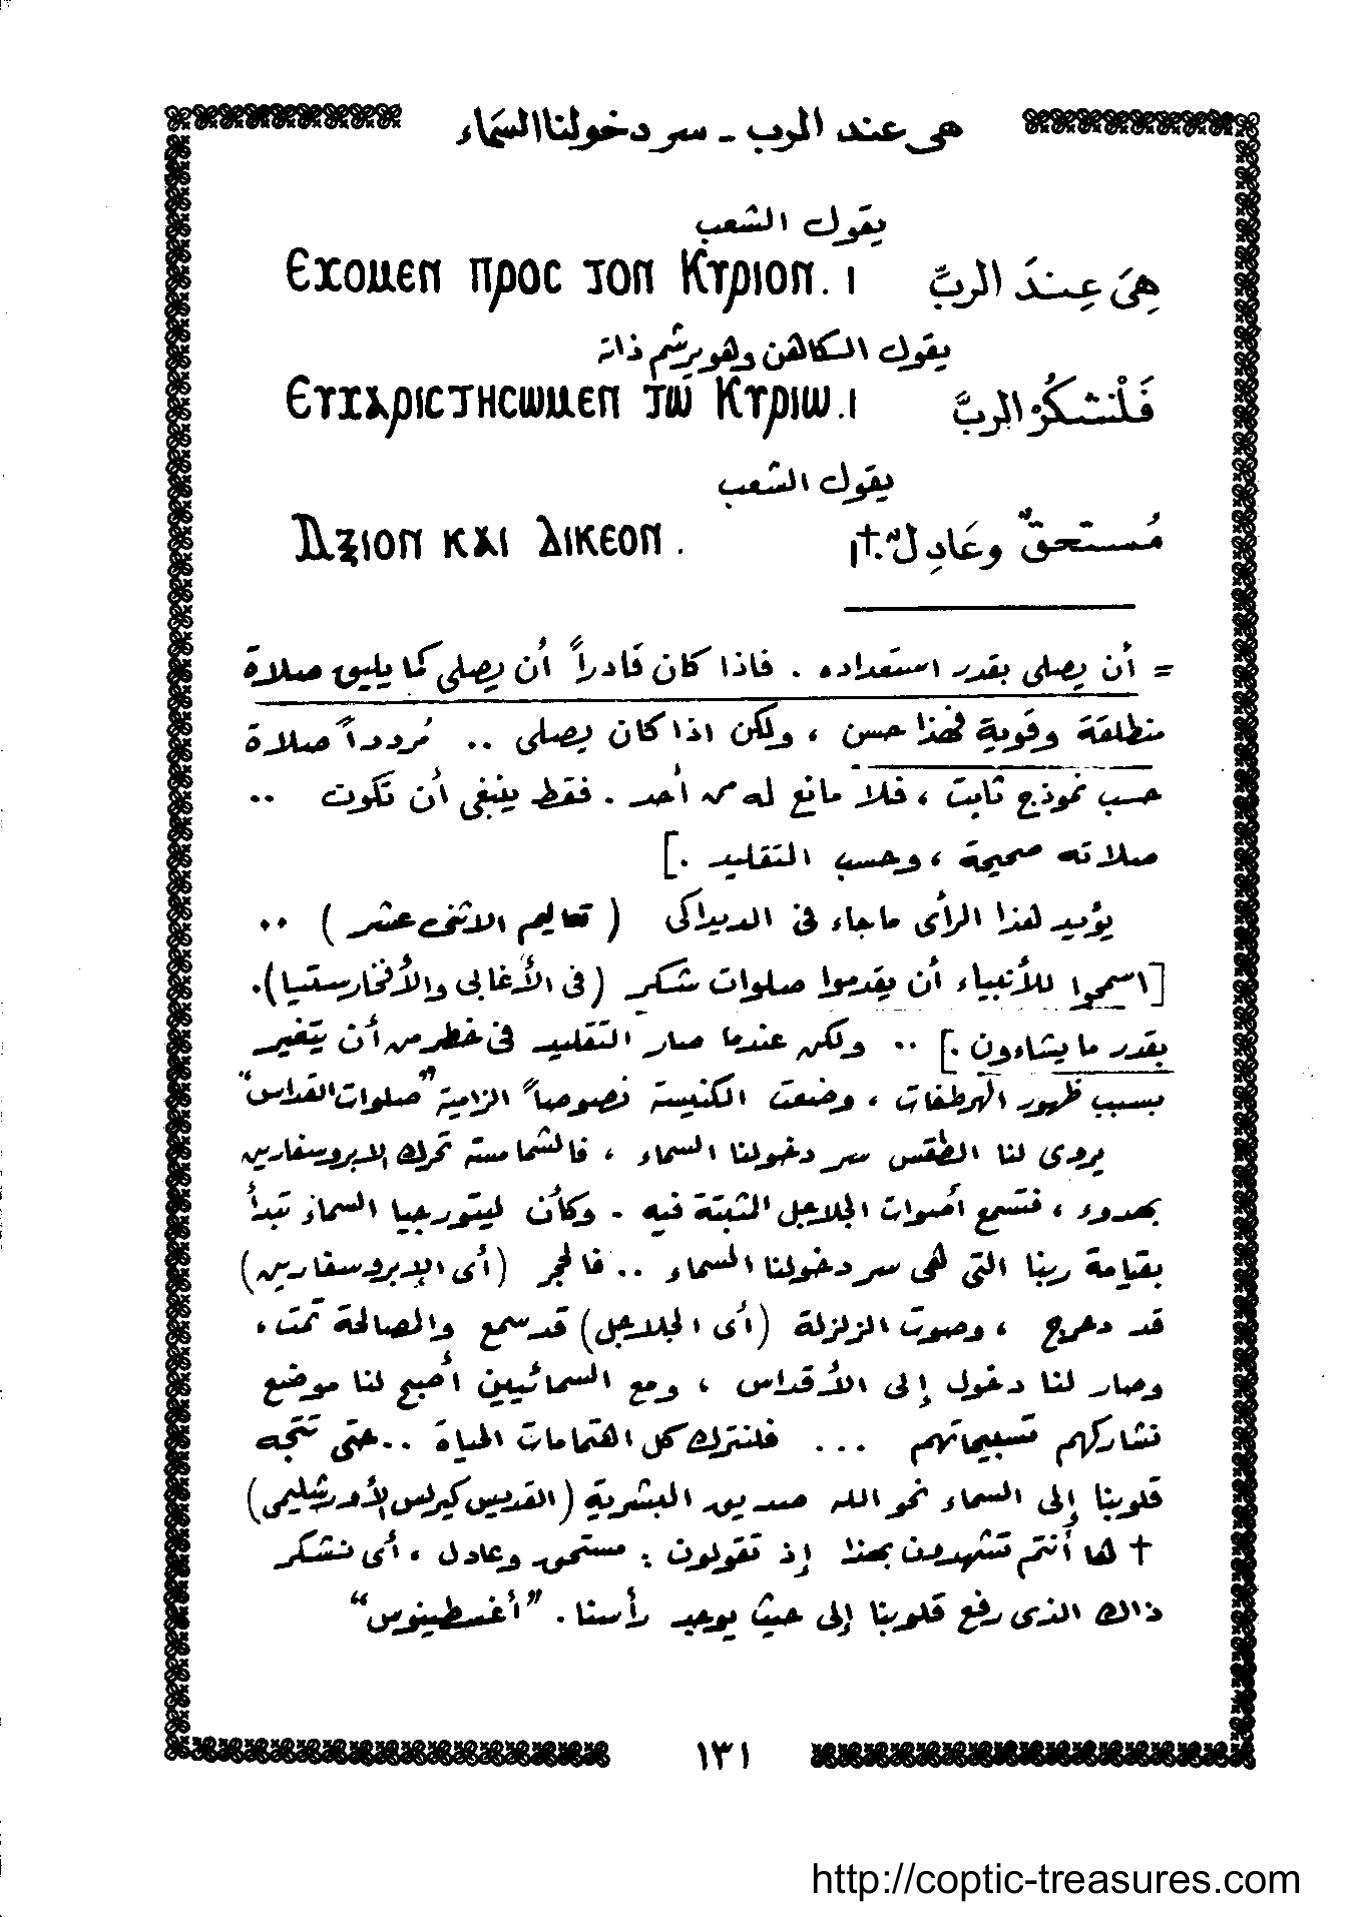 هى عند الرب ـ سر دخولنا السَماء
يقول الشعب
هِىَ عِندَ الربِّ Ⲉⲭⲟⲙⲉⲛ ⲡⲣⲟⲥ ⲧⲟⲛ Ⲕⲩⲣⲓⲟⲛ. ا
يقول الكاهن وهو يرشم ذاته
فَلْنشكُرْ الربَّ Ⲉⲩⲭⲁⲣⲓⲥⲧⲏⲥⲱⲙⲉⲛ ⲧⲱ Ⲕⲩⲣⲓⲱ. ا
يقول الشعب
مُستحقٌ وعَادِلٌ.✝ا Ⲁⲝⲓⲟⲛ ⲕⲁⲓ ⲇⲓⲕⲉⲟⲛ.
= أن يصلى بقدر استعداده . فاذا كان قادراً أن يصلى كما يليق صلاة
منطلقة وقوية فهذا حسن ، ولكن اذا كان يصلى .. مُردداً صلاة
حسب نموذج ثابت ، فلا مانع له من أحد . فقط ينبغى أن تكون ..
صلاته صحيحة ، وحسب التقليد .]
يؤيد هذا الرأى ماجاء فى الديداكى ( تعاليم الاثنى عشر ) ..
[اسمحوا للأنبياء أن يقدموا صلوات شكر (فى الأغابى والأفخارستيا).
بقدر ما يشاءون .] .. ولكن عندما صار التقليد فى خطر من أن يتغير
بسبب ظهور الهرطقات ، وضعت الكنيسة نصوصاً الزامية "صلوات القداس"
يروى لنا الطقس سر دخولنا السماء ، فالشمامسة تحرك الابروسفارين
بهدوء ، فتسمع أصوات الجلاجل المثبتة فيه . وكأن ليتورجيا السماء تبدأ
بقيامة ربنا التى هى سر دخولنا السماء .. فالحجر (أى الإبروسفارين)
قد دحرج ، وصوت الزلزلة (أى الجلاجل) قد سمع والمصالحة تمت ،
وصار لنا دخول إلى الأقداس ، ومع السمائيين أصبح لنا موضع
نشاركهم تسبيحاتهم ... فلنترك كل اهتمامات الحياة .. حتى تتجه
قلوبنا إلى السماء نحو الله صديق البشرية (القديس كيرلس الأورشليمى)
✝ ها أنتم تشهدون بهذا إذ تقولون : مستحق وعادل ، أى نشكر
ذاك الذى رفع قلوبنا إلى حيث يوجد رأسنا . "أغسطينوس"
١٣١
http://coptic-treasures.com